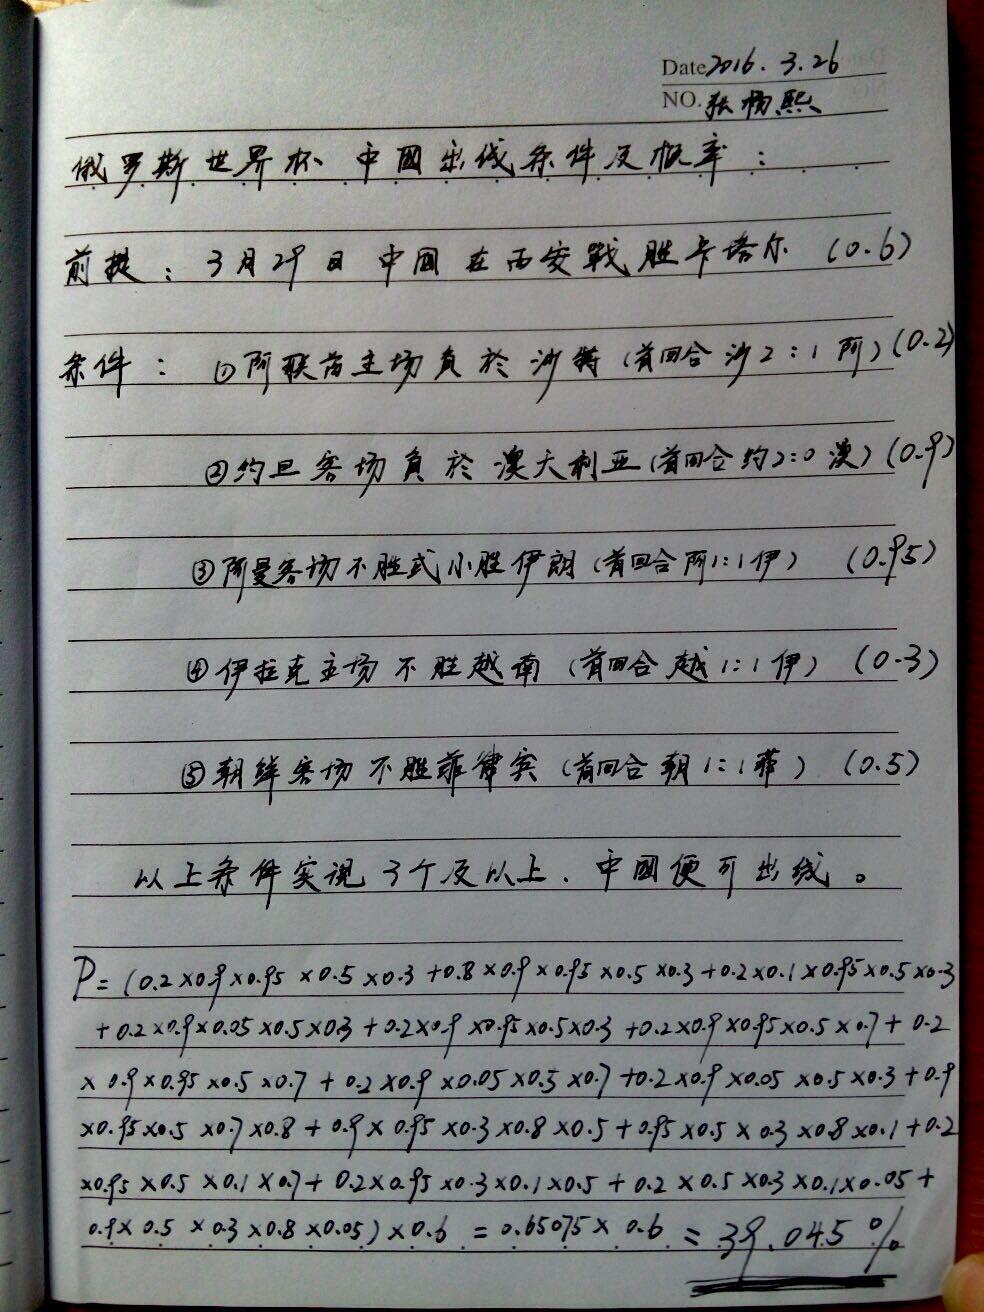 Date 2016.3.26
NO. 张杨熙
俄罗斯世界杯中國出线条件及概率：
前提：3月29日中国在西安戰胜卡塔尔（0.6）
条件：①阿联酋主场負於沙特（首回合沙2:1阿）（0.2）
②约旦客场負於澳大利亚（首回合约2:0澳）（0.9）
③阿曼客场不胜或小胜伊朗（首回合阿1:1伊）（0.95）
④伊拉克主场不胜越南（首回合越1:1伊）（0.3）
⑤朝鲜客场不胜菲律宾（首回合朝1:1菲）（0.5）
以上条件实现3个及以上，中國便可出线。
P=(0.2×0.9×0.95×0.5×0.3+0.8×0.9×0.95×0.5×0.3+0.2×0.1×0.95×0.5×0.3
+0.2×0.9×0.05×0.5×0.3+0.2×0.9×0.95×0.5×0.3+0.2×0.9×0.95×0.5×0.7+0.2
×0.9×0.95×0.5×0.7+0.2×0.9×0.05×0.5×0.7+0.2×0.9×0.05×0.5×0.3+0.9
×0.95×0.5×0.7×0.8+0.9×0.95×0.3×0.8×0.5+0.95×0.5×0.3×0.8×0.1+0.2
×0.95×0.5×0.1×0.7+0.2×0.95×0.3×0.1×0.5+0.2×0.5×0.3×0.1×0.05+
0.9×0.5×0.3×0.8×0.05)×0.6=0.65075×0.6=39.045%